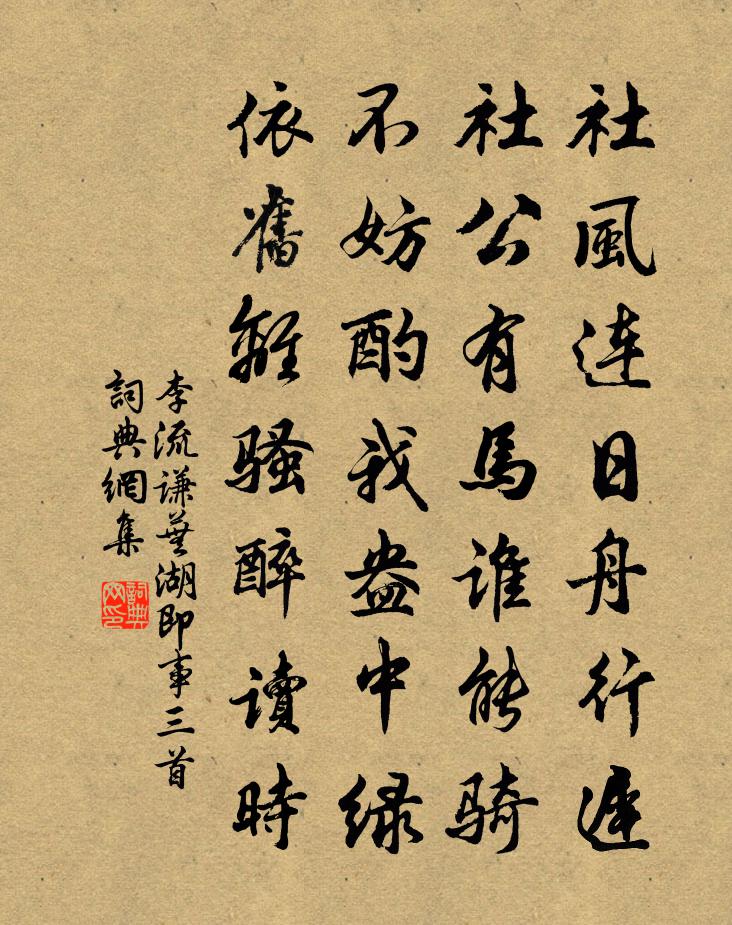 社風連日舟行遲
社公有馬誰能騎
不妨酌我盎中綠
依舊離騷醉讀時
李流謙蕪湖即事三首
詞典網集
詞典網印